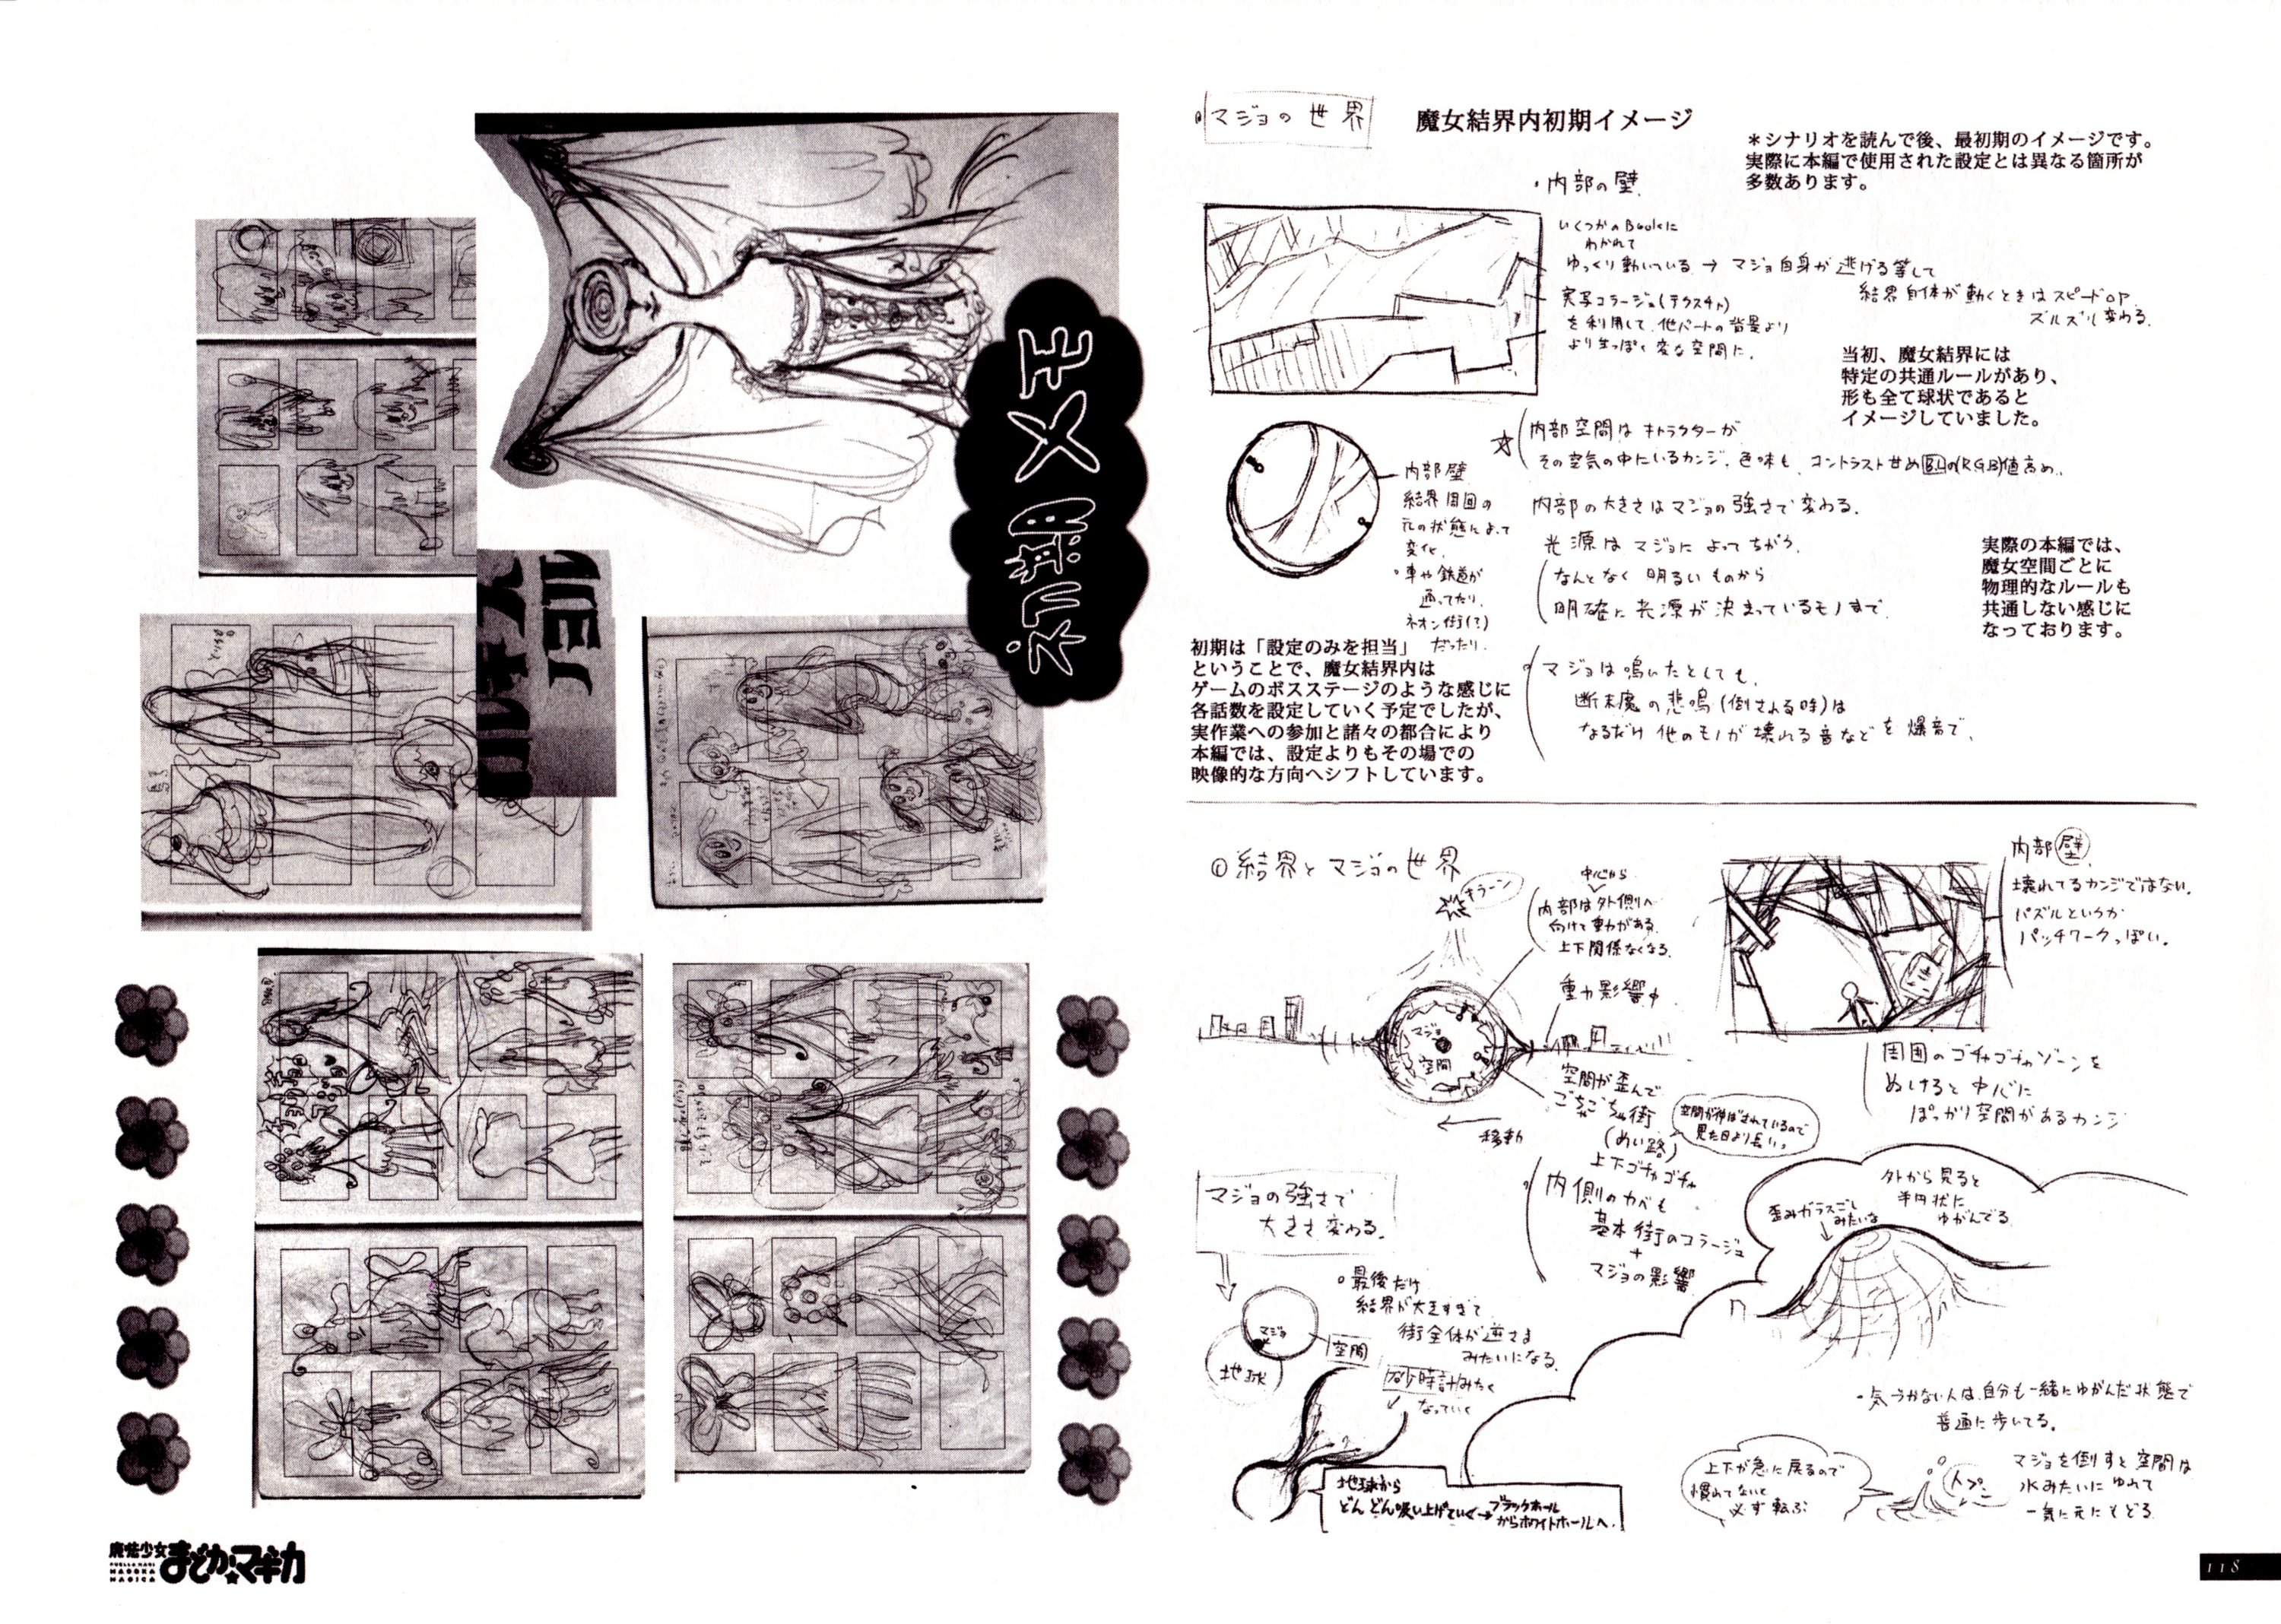 初期メモ
マジョの世界
魔女結界内初期イメージ
＊シナリオを読んで後、最初期のイメージです。
実際に本編で使用された設定とは異なる箇所が
多数あります。
・内部の壁
いくつかのBookに
わかれて
ゆっくり動いている → マジョ自身が逃げる等して
結界自体が動くときはスピードUP
ズルズル変わる。
実写コラージュ(テクスチャ)
を利用して、他パートの背景より
より生っぽく変な空間に。
当初、魔女結界には
特定の共通ルールがあり、
形も全て球状であると
イメージしていました。
☆ 内部空間はキャラクターが
その空気の中にいるカンジ。色味も、コントラスト甘め
内部壁
結界周囲の
元の状態によって
変化。
・車や鉄道が
通ってたり、
ネオン街(?)
だったり。
内部の大きさはマジョの強さで変わる。
光源はマジョによってちがう。
なんとなく明るいものから
明確に光源が決まっているモノまで。
実際の本編では、
魔女空間ごとに
物理的なルールも
共通しない感じに
なっております。
初期は「設定のみを担当」
ということで、魔女結界内は
ゲームのボスステージのような感じに
各話数を設定していく予定でしたが、
実作業への参加と諸々の都合により
本編では、設定よりもその場での
映像的な方向へシフトしています。
マジョは鳴いたとしても、
断末魔の悲鳴(倒される時)は
なるだけ他のモノが壊れる音などを爆音で。
結界とマジョの世界
キラーン
中心から
内部は外側へ
向けて重力がある。
上下関係なくなる。
重力影響中
マジョ
空間
空間が歪んで
ごちゃごちゃ街
(めい路)
上下ゴチャゴチャ
空間が伸ばされているので
見た目より長い。
移動
内部壁
壊れてるカンジではない。
パズルというか
パッチワークっぽい。
周囲のゴチャゴチャゾーンを
ぬけると中心に
ぽっかり空間があるカンジ
内側のカベも
基本街のコラージュ
+
マジョの影響
マジョの強さで
大きさ変わる。
マジョ
地球
空間
・最後だけ
結界が大きすぎて
街全体が逆さま
みたいになる。
砂時計みたく
なっていく
地球から
どんどん吸い上げていく→ブラックホール
からホワイトホールへ。
外から見ると
半円状に
ゆがんでる。
歪みガラスごし
みたいな
・気づかない人は、自分も一緒にゆがんだ状態で
普通に歩いてる。
上下が急に戻るので
慣れてないと
必ず転ぶ
マジョを倒すと空間は
水みたいにゆれて
一気に元にもどる
魔法少女
まどか☆マギカ
PUELLA MAGI
MADOKA
MAGICA
118